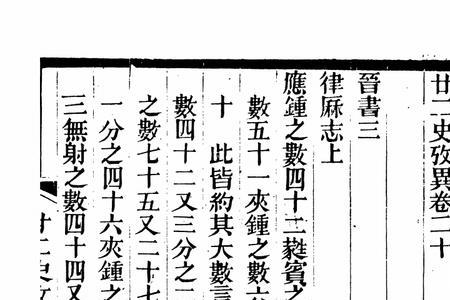 廿二史攷異卷二十
晉書三
律厤志上
應鍾之數四十二蕤賓之
數五十一夾鍾之數六
十 此皆約其大數言
數四十二又三分之二
之數七十五又二十七
一分之四十六夾鍾之
三無射之數四十四又
廿二史攷